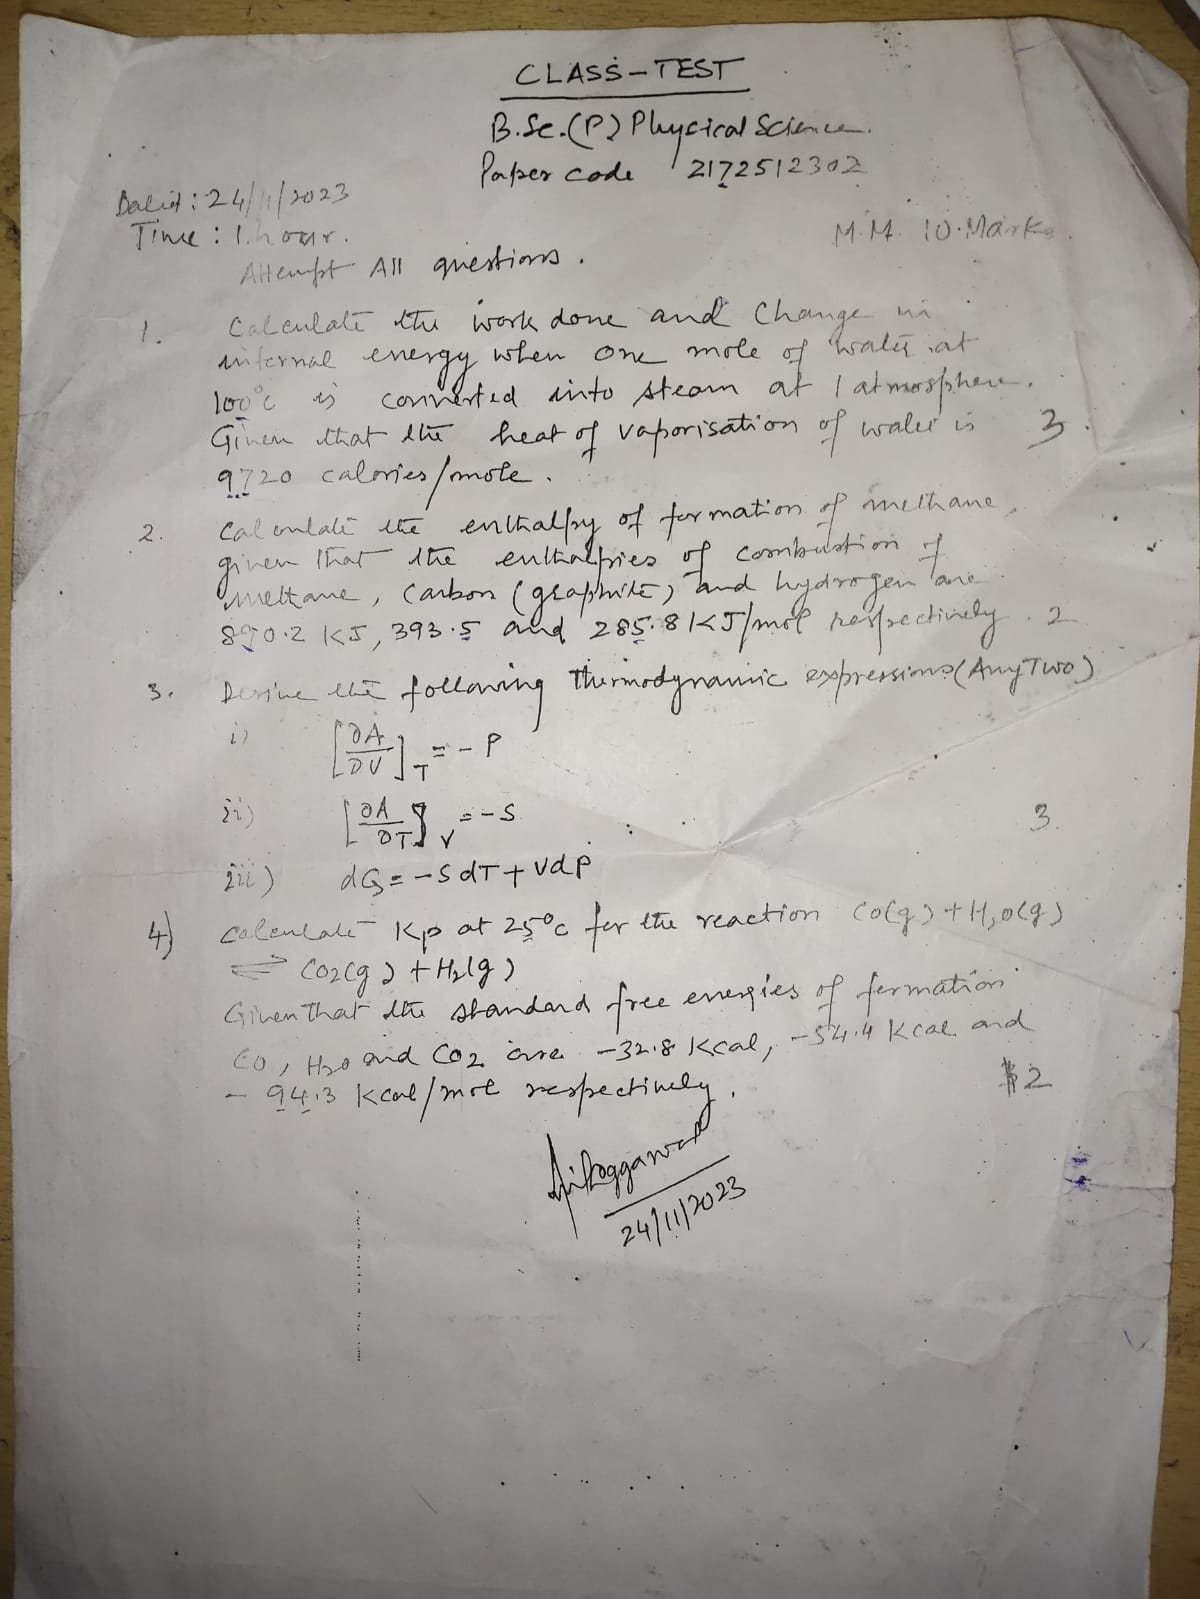 CLASS-TEST
B.Sc.(P) Physical Science.
Paper code 2172512302
Dated: 24/11/2023
Time: 1 hour.
M.M. 10 Marks.
Attempt All questions.
1. Calculate the work done and Change in
internal energy when one mole of water at
100°C is converted into steam at 1 atmosphere.
Given that the heat of vaporisation of water is 3.
9720 calories/mole.
2. Calculate the enthalpy of formation of methane,
given that the enthalpies of combustion of
methane, Carbon (graphite) and hydrogen are
890.2 KJ, 393.5 and 285.8 KJ/mol respectively. 2
3. Derive the following thermodynamic expressions (Any Two)
i) [∂A/∂V]T = -P
ii) [∂A/∂T]V = -S 3.
iii) dG = -SdT + VdP
4) Calculate Kp at 25°C for the reaction CO(g) + H2O(g)
⇌ CO2(g) + H2(g)
Given that the standard free energies of formation
CO, H2O and CO2 are -32.8 Kcal, -54.4 Kcal and
- 94.3 Kcal/mol respectively. 2
24/11/2023